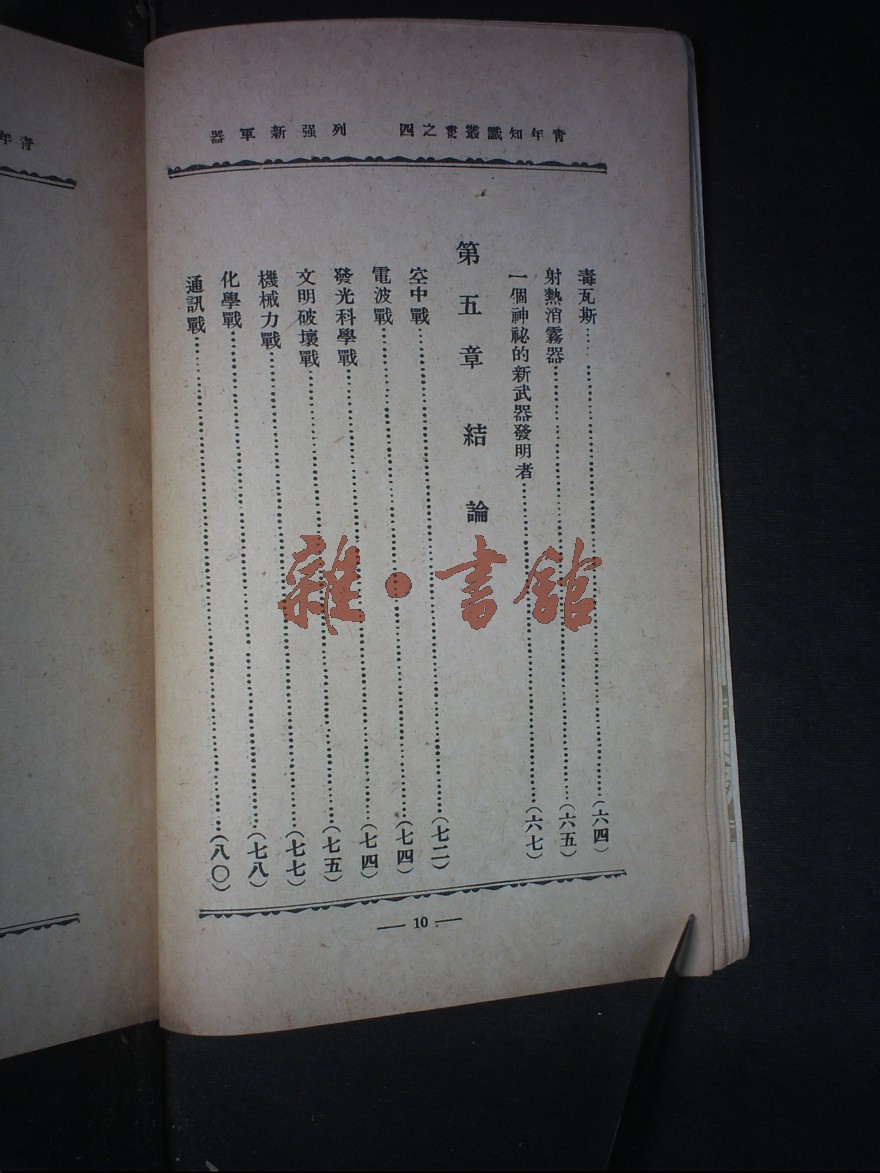 青年知識叢書之四 列强新軍器
毒瓦斯……(六四)
射熱消霧器……(六五)
一個神祕的新武器發明者……(六七)
第五章 結論
空中戰……(七二)
電波戰……(七四)
發光科學戰……(七四)
文明破壞戰……(七五)
機械力戰……(七七)
化學戰……(七八)
通訊戰……(八〇)
— 10 —
青年
雜·書館